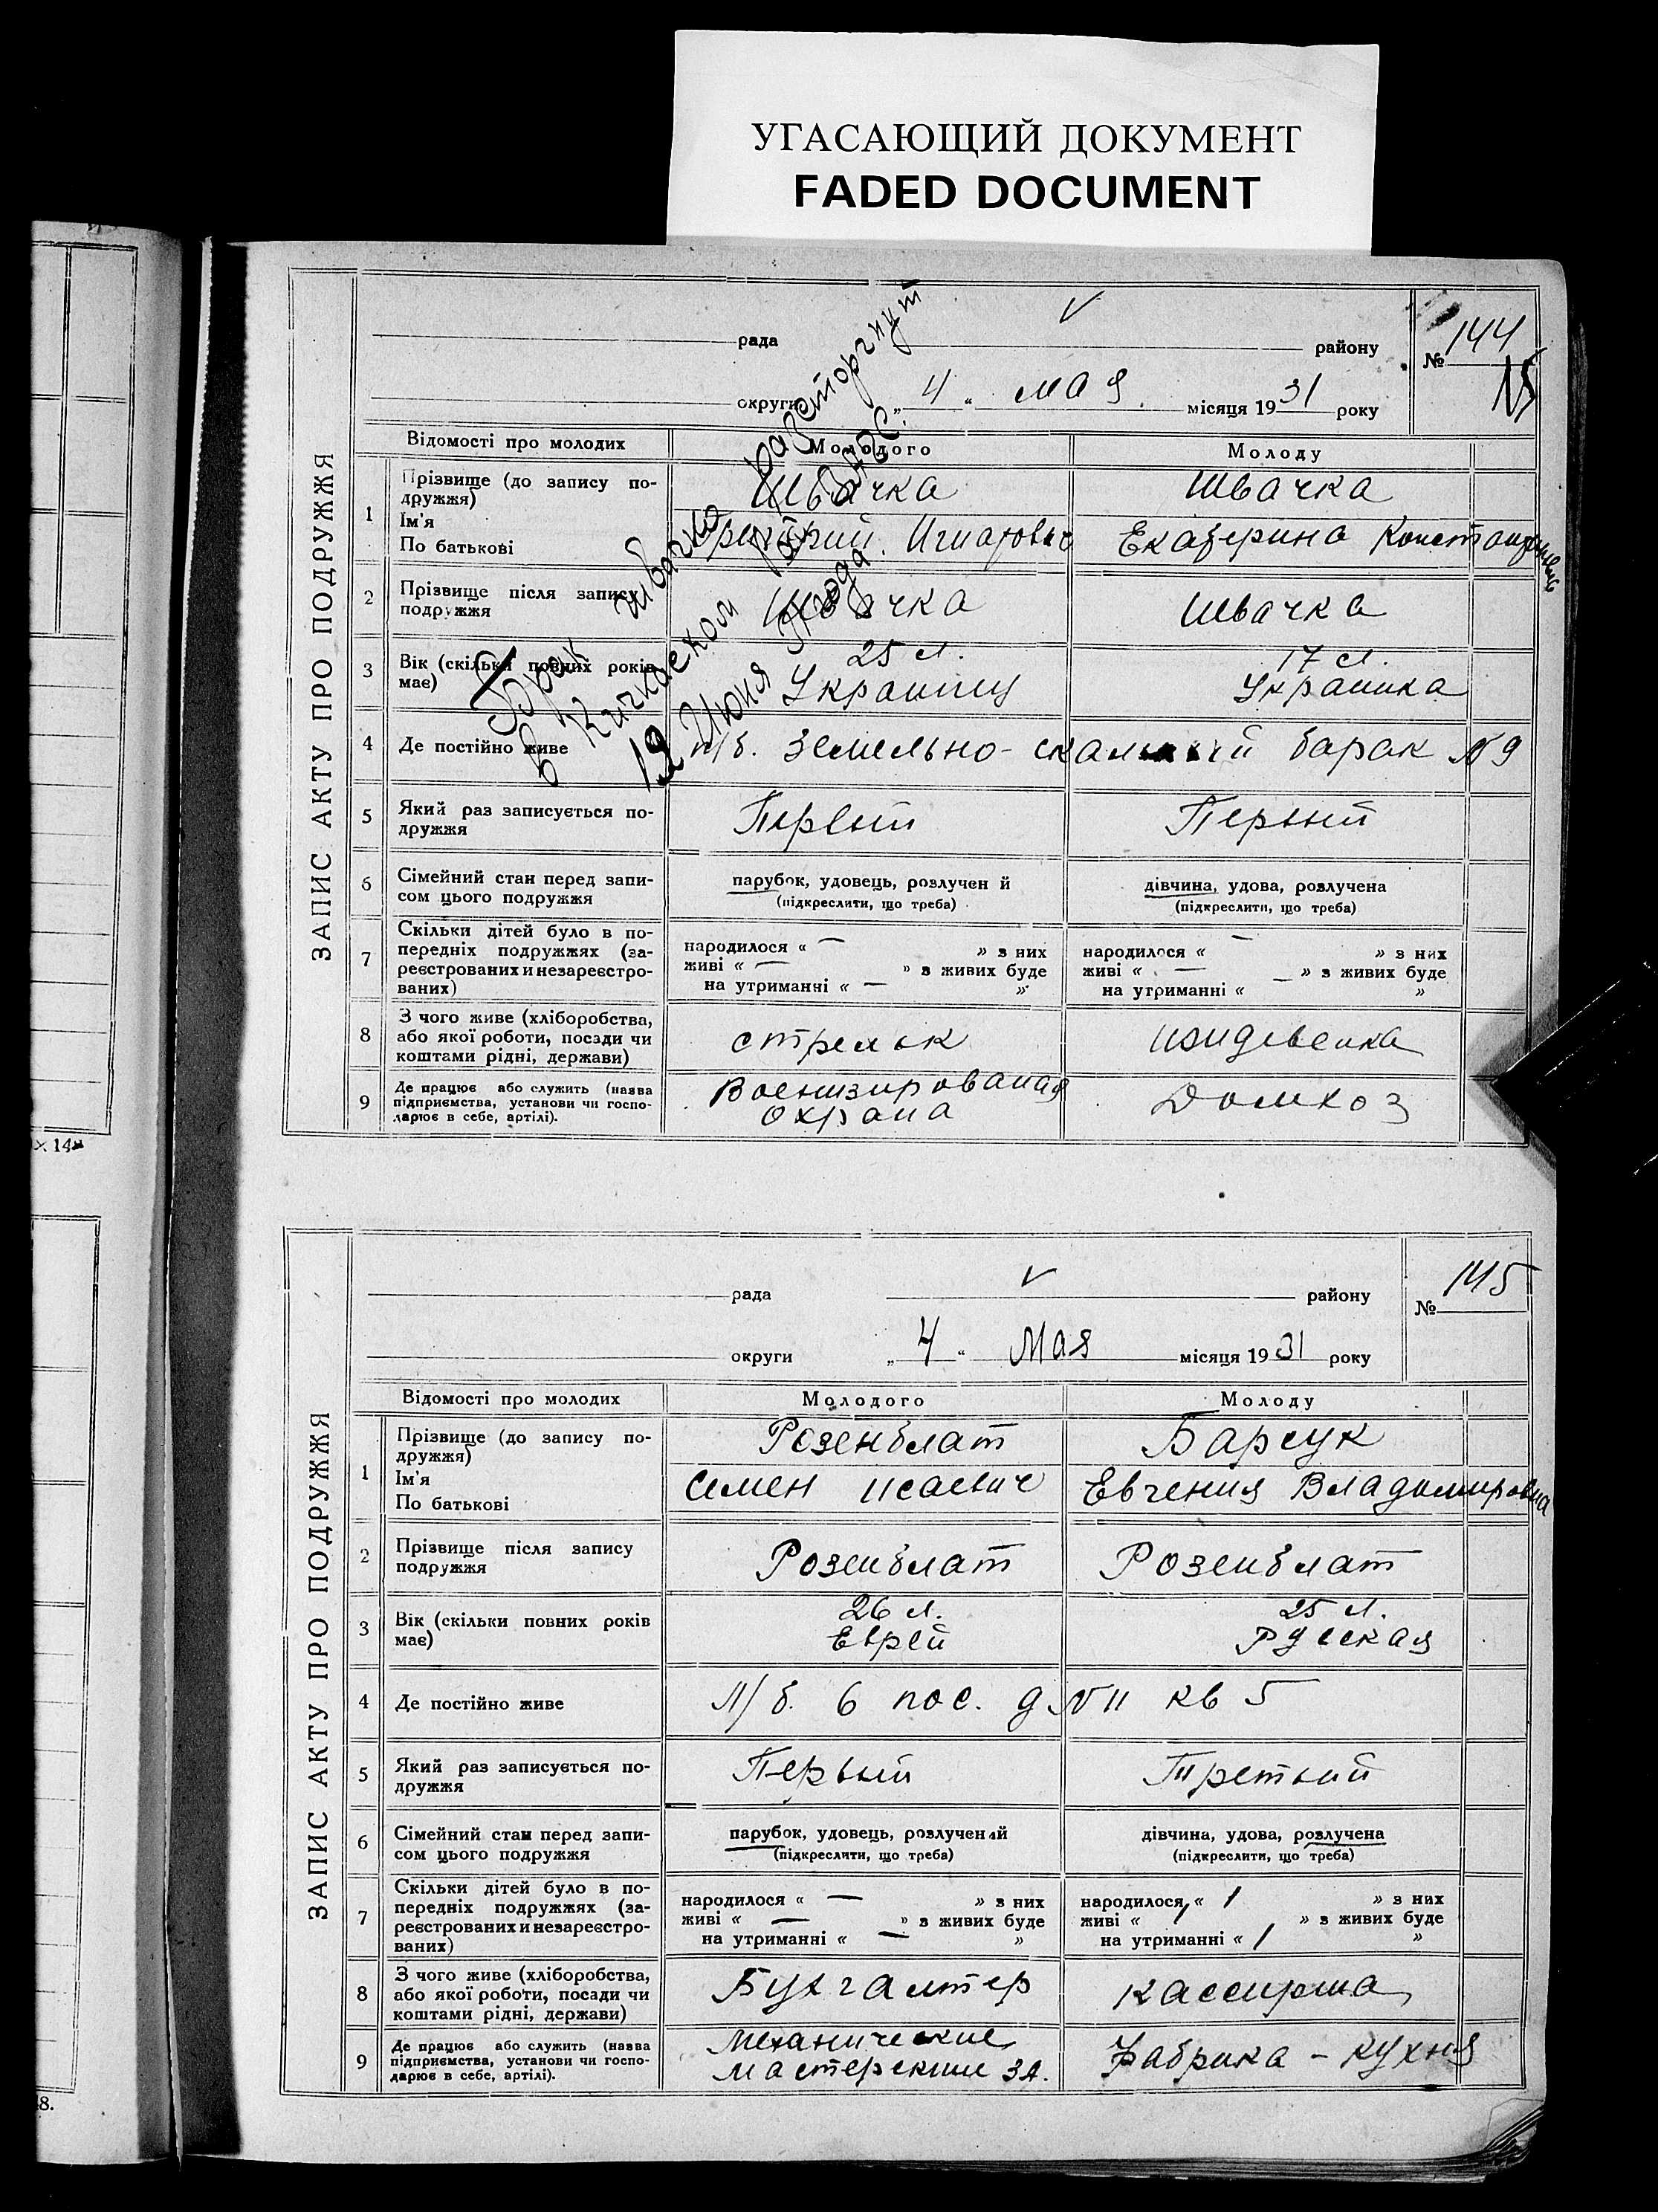 УГАСАЮЩИЙ ДОКУМЕНТ
FADED DOCUMENT
ЗАПИС АКТУ ПРО ПОДРУЖЖЯ
рада
району
№ 144
15
округи
„ 4 “ мая місяця 1931 року
Брак Швачка расторгнут
в Кичкасском ЗАГС.
19 Июня года
Відомості про молодих
Молодого
Молоду
1
Прізвище (до запису по-
дружжя)
Ім'я
По батькові
Швачка
Швачка
Игнатович
Екатерина Константиновна
2
Прізвище після запису
подружжя
Швачка
Швачка
3
Вік (скільки повних років
має)
25 л.
Украинец
17 л.
Украинка
4
Де постійно живе
п/б. Земельно-скальный барак № 9
5
Який раз записується по-
дружжя
Первый
Первый
6
Сімейний стан перед запи-
сом цього подружжя
парубок, удовець, розлучен й
(підкреслити, що треба)
дівчина, удова, розлучена
(підкреслити, що треба)
7
Скільки дітей було в по-
передніх подружжях (за-
реєстрованих и незареєстро-
ваних)
народилося « — » з них
живі « — » з живих буде
на утриманні « — »
народилося « — » з них
живі « — » з живих буде
на утриманні « — »
8
З чого живе (хліборобства,
або якої роботи, посади чи
коштами рідні, держави)
стрелок
иждевенка
9
Де працює або служить (назва
підприємства, установи чи госпо-
дарює в себе, артілі).
Военизированая
охрана
Домхоз
х 14
ЗАПИС АКТУ ПРО ПОДРУЖЖЯ
рада
району
№ 145
округи
„ 4 “ Мая місяця 1931 року
Відомості про молодих
Молодого
Молоду
1
Прізвище (до запису по-
дружжя)
Ім'я
По батькові
Розенблат
Семен Исаевич
Барсук
Евгения Владимировна
2
Прізвище після запису
подружжя
Розенблат
Розенблат
3
Вік (скільки повних років
має)
26 л.
Еврей
25 л.
Русская
4
Де постійно живе
Л/б. 6 пос. д № 11 кв 5
5
Який раз записується по-
дружжя
Первый
Третьий
6
Сімейний стан перед запи-
сом цього подружжя
парубок, удовець, розлучений
(підкреслити, що треба)
дівчина, удова, розлучена
(підкреслити, що треба)
7
Скільки дітей було в по-
передніх подружжях (за-
реєстрованих и незареєстро-
ваних)
народилося « — » з них
живі « — » з живих буде
на утриманні « — »
народилося « 1 » з них
живі « 1 » з живих буде
на утриманні « 1 »
8
З чого живе (хліборобства,
або якої роботи, посади чи
коштами рідні, держави)
Бухгалтер
кассирша
9
Де працює або служить (назва
підприємства, установи чи госпо-
дарює в себе, артілі).
Механические
мастерские ЗА.
Фабрика - кухня
8.